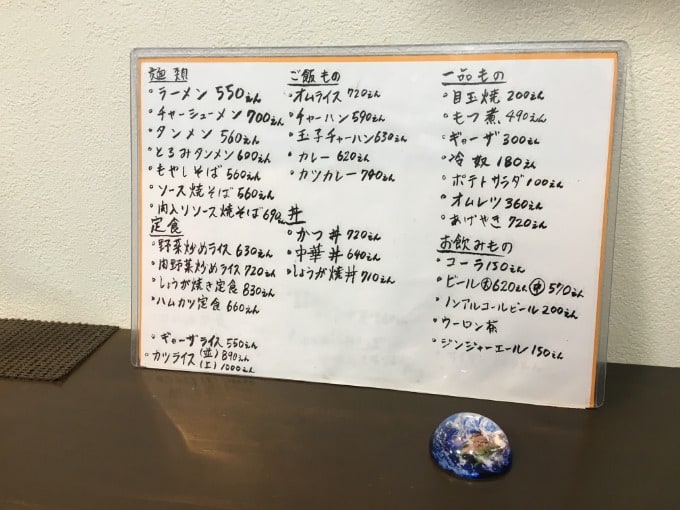 麺類
・ラーメン 550えん
・チャーシューメン 700えん
・タンメン 560えん
・とろみタンメン 600えん
・もやしそば 560えん
・ソース焼そば 560えん
・肉入りソース焼そば 690えん
定食
・野菜炒めライス 630えん
・肉野菜炒めライス 720えん
・しょうが焼き定食 830えん
・ハムカツ定食 660えん
・ギョーザライス 550えん
・カツライス (並) 890えん
(上) 1000えん
ご飯もの
・オムライス 720えん
・チャーハン 590えん
・玉子チャーハン 630えん
・カレー 620えん
・カツカレー 790えん
丼
・かつ丼 720えん
・中華丼 640えん
・しょうが焼丼 710えん
一品もの
・目玉焼 200えん
・もつ煮 490えん
・ギョーザ 300えん
・冷奴 180えん
・ポテトサラダ 100えん
・オムレツ 360えん
・あげやき 720えん
お飲みもの
・コーラ 150えん
・ビール 大 620えん 中 570えん
・ノンアルコールビール 200えん
・ウーロン茶
・ジンジャーエール 150えん